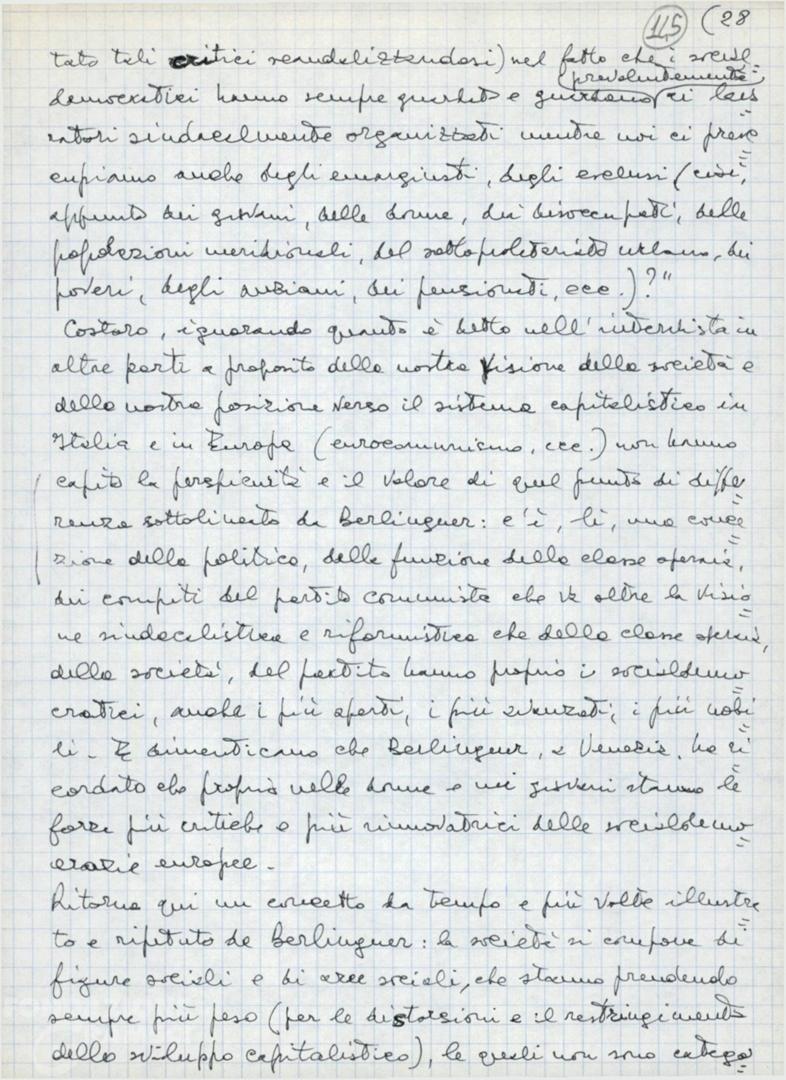 115 (28
tato tali critici scandalizzandosi) nel fatto che i social=
(prevalentemente)
democratici hanno sempre guardato e guardano ai lavo=
ratori sindacalmente organizzati mentre noi ci preoc=
cupiamo anche degli emarginati, degli esclusi (cioè,
appunto dei giovani, delle donne, dei disoccupati, delle
popolazioni meridionali, del sottoproletariato urbano, dei
poveri, degli anziani, dei pensionati, ecc.)?"
Costoro, ignorando quanto è detto nell'intervista in
altre parti a proposito della nostra visione della società e
della nostra posizione verso il sistema capitalistico in
Italia e in Europa (eurocomunismo, ecc.) non hanno
capito la perspicuità e il valore di quel punto di diffe=
renza sottolineato da Berlinguer: c'è, lì, una conce=
zione della politica, della funzione della classe operaia,
dei compiti del partito comunista che va oltre la visio=
ne sindacalistica e riformistica che della classe operaia,
della società, del partito hanno proprio i socialdemo=
cratici, anche i più aperti, i più avanzati, i più nobi=
li. E dimenticano che Berlinguer, a Venezia, ha ri=
cordato che proprio nelle donne e nei giovani stanno le
forze più critiche e più rinnovatrici delle socialdemo=
crazie europee.
Ritorna qui un concetto da tempo e più volte illustra=
to e ripetuto da Berlinguer: la società si compone di
figure sociali e di aree sociali, che stanno prendendo
sempre più peso (per le distorsioni e il restringimento
dello sviluppo capitalistico), le quali non sono catego=